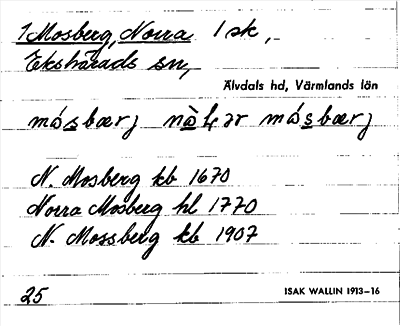 1 Mosberg, Norra 1 sk,
Ekshärads sn,
Älvdals hd, Värmlands län
N. Mosberg kb 1670
Norra Mosberg hl 1770
N. Mossberg kb 1907
25 ISAK WALLIN 1913–16